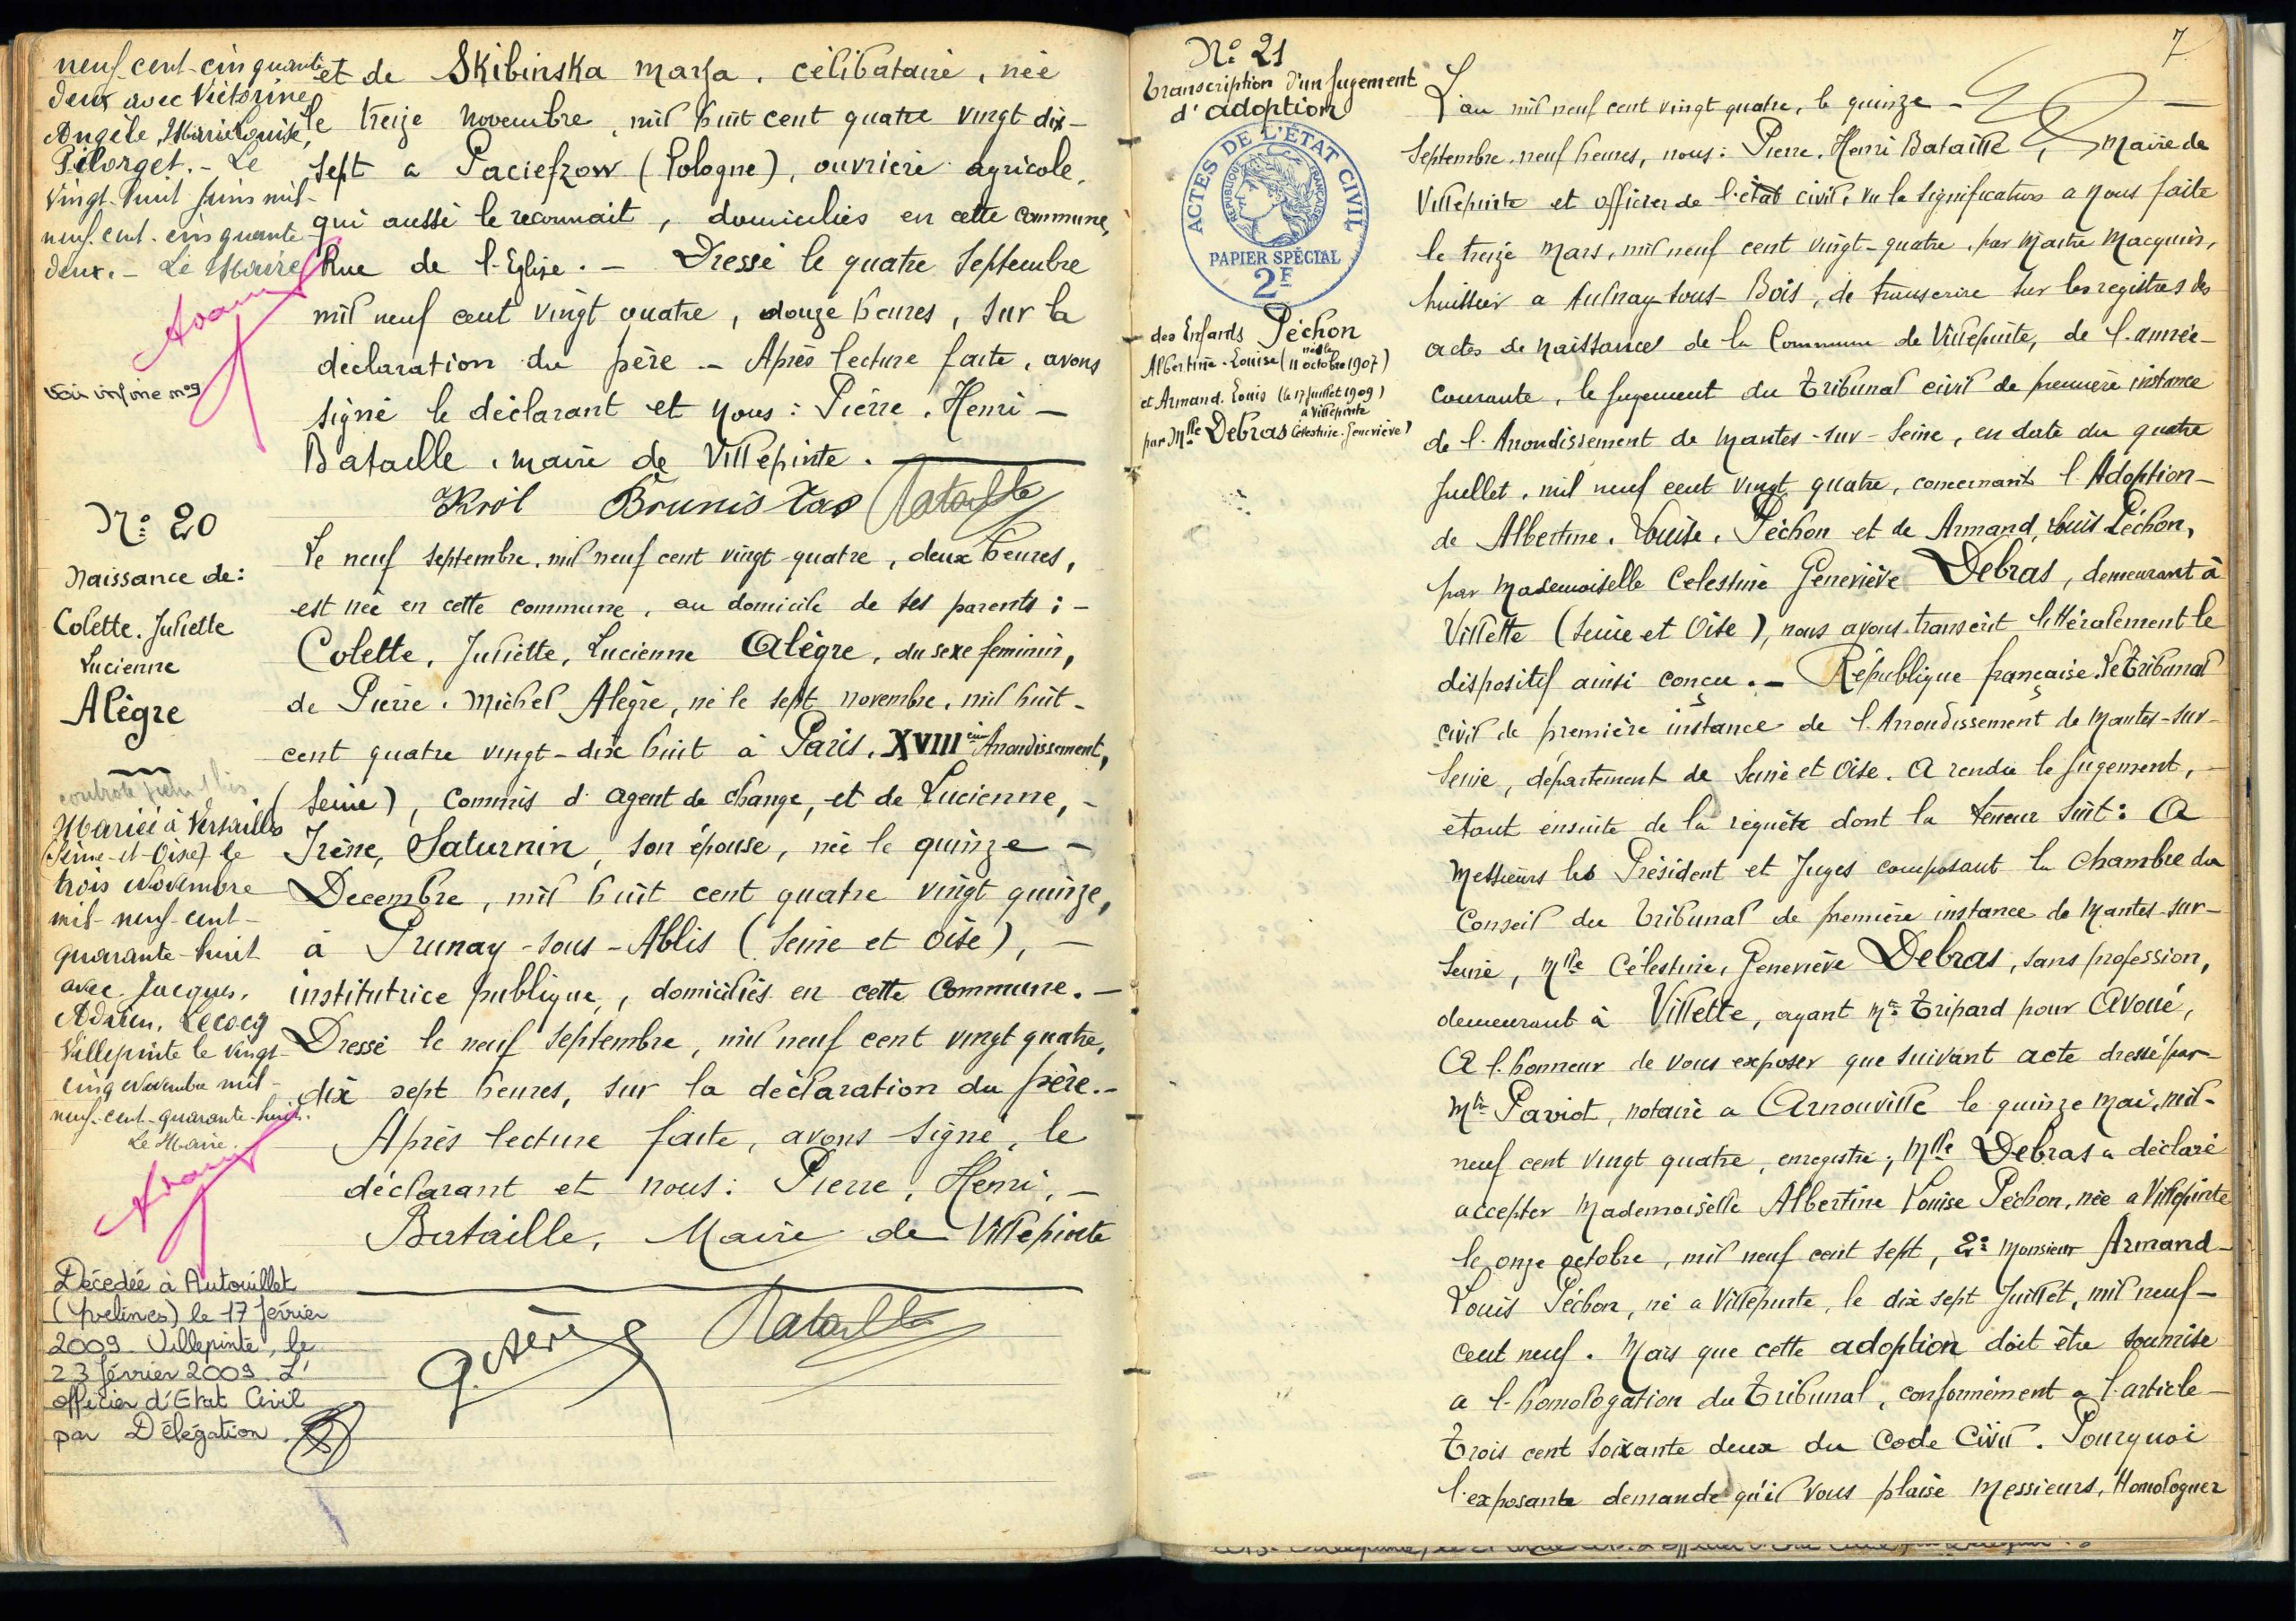 neuf-cent-cinquante
deux avec Victorine
Angèle, Marie Louise,
Pilorget. - Le
vingt-huit Juin mil-
neuf-cent-cinquante
deux. - Le Maire
Voir infine n°9
et de Skibinska Marja, célibataire, née
le treize Novembre, mil huit cent quatre vingt dix-
sept a Paciefzow (Pologne), ouvrière agricole,
qui aussi le reconnait, domiciliés en cette Commune,
Rue de l'Eglise. - Dressé le quatre Septembre
mil neuf cent vingt quatre, douze heures, sur la
déclaration du père - Après lecture faite, avons
signé le déclarant et nous : Pierre, Henri -
Bataille, maire de Villepinte.
Krol Bronislas Bataille
N° 20
Naissance de :
Colette, Juliette
Lucienne
Alègre
Mariée à Versailles
(Seine-et-Oise) le
trois Novembre
mil-neuf-cent-
quarante-huit
avec Jacques,
Adrien, Lecocq
Villepinte le vingt-
cinq Novembre mil-
neuf-cent-quarante-huit.
Le Maire.
Décédée à Autouillet
(Yvelines) le 17 février
2009. Villepinte, le
23 février 2009. L'
officier d'Etat Civil
par Délégation.
Le neuf septembre, mil neuf cent vingt-quatre, deux heures,
est née en cette commune, au domicile de ses parents : -
Colette, Juliette, Lucienne Alègre, du sexe feminin,
de Pierre, Michel Alègre, né le sept novembre, mil huit-
cent quatre vingt-dix huit à Paris, XVIII ème Arrondissement,
(Seine), Commis d'agent de change, et de Lucienne, -
Irène, Saturnin, son épouse, née le quinze -
Decembre, mil huit cent quatre vingt quinze,
à Prunay-sous-Ablis (Seine et Oise), -
institutrice publique, domiciliés en cette Commune. -
Dressé le neuf Septembre, mil neuf cent vingt quatre,
dix sept heures, sur la déclaration du père. -
Après lecture faite, avons signé, le
déclarant et nous : Pierre, Henri, -
Bataille, Maire de Villepinte
Bataille
7
N° 21
Transcription d'un Jugement
d'adoption
ACTES DE L'ÉTAT CIVIL
RÉPUBLIQUE FRANÇAISE
PAPIER SPÉCIAL
2F
des Enfants Péchon
Albertine-Louise (née le 11 octobre 1907)
et Armand. Louis (le 17 Juillet 1909)
à Villepinte
par Mlle Debras (Célestine-Geneviève)
L'an mil neuf cent vingt quatre, le quinze -
Septembre, neuf heures, nous : Pierre, Henri Bataille, Maire de
Villepinte et officier de l'état civil, vu la signification a nous faite
le treize Mars, mil neuf cent vingt-quatre, par Maître Macquin,
huissier a Aulnay-sous-Bois, de transcrire sur les registres des
actes de naissances de la Commune de Villepinte, de l'année -
courante, le jugement du Tribunal civil de première instance
de l'Arrondissement de Mantes-sur-Seine, en date du quatre
Juillet, mil neuf cent vingt quatre, concernant l'Adoption -
de Albertine, Louise, Péchon et de Armand, Louis Péchon,
par Mademoiselle Celestine Geneviève Debras, demeurant à
Villette (Seine et Oise), nous avons transcrit littéralement le
dispositif ainsi conçu. - République française. Le Tribunal
civil de première instance de l'Arrondissement de Mantes-sur-
Seine, département de Seine et Oise. A rendu le jugement, -
étant ensuite de la requête dont la teneur suit : A
Messieurs les Président et Juges composant la Chambre du
Conseil du Tribunal de première instance de Mantes-sur-
Seine, Mlle Célestine, Geneviève Debras, sans profession,
demeurant à Villette, ayant Me Tripard pour Avoué,
A l'honneur de vous exposer que suivant acte dressé par -
Me Paviot, notaire a Arnouville le quinze Mai, mil-
neuf cent vingt quatre, enregistré, Mlle Debras a déclaré
accepter Mademoiselle Albertine Louise Péchon, née a Villepinte
le onze octobre, mil neuf cent sept, 2° Monsieur Armand -
Louis Péchon, né a Villepinte, le dix sept Juillet, mil neuf -
cent neuf. Mais que cette adoption doit être soumise
a l'homologation du Tribunal, conformément a l'article -
Trois cent soixante deux du Code Civil. Pourquoi
l'exposante demande qu'il vous plaise Messieurs, Homologuer